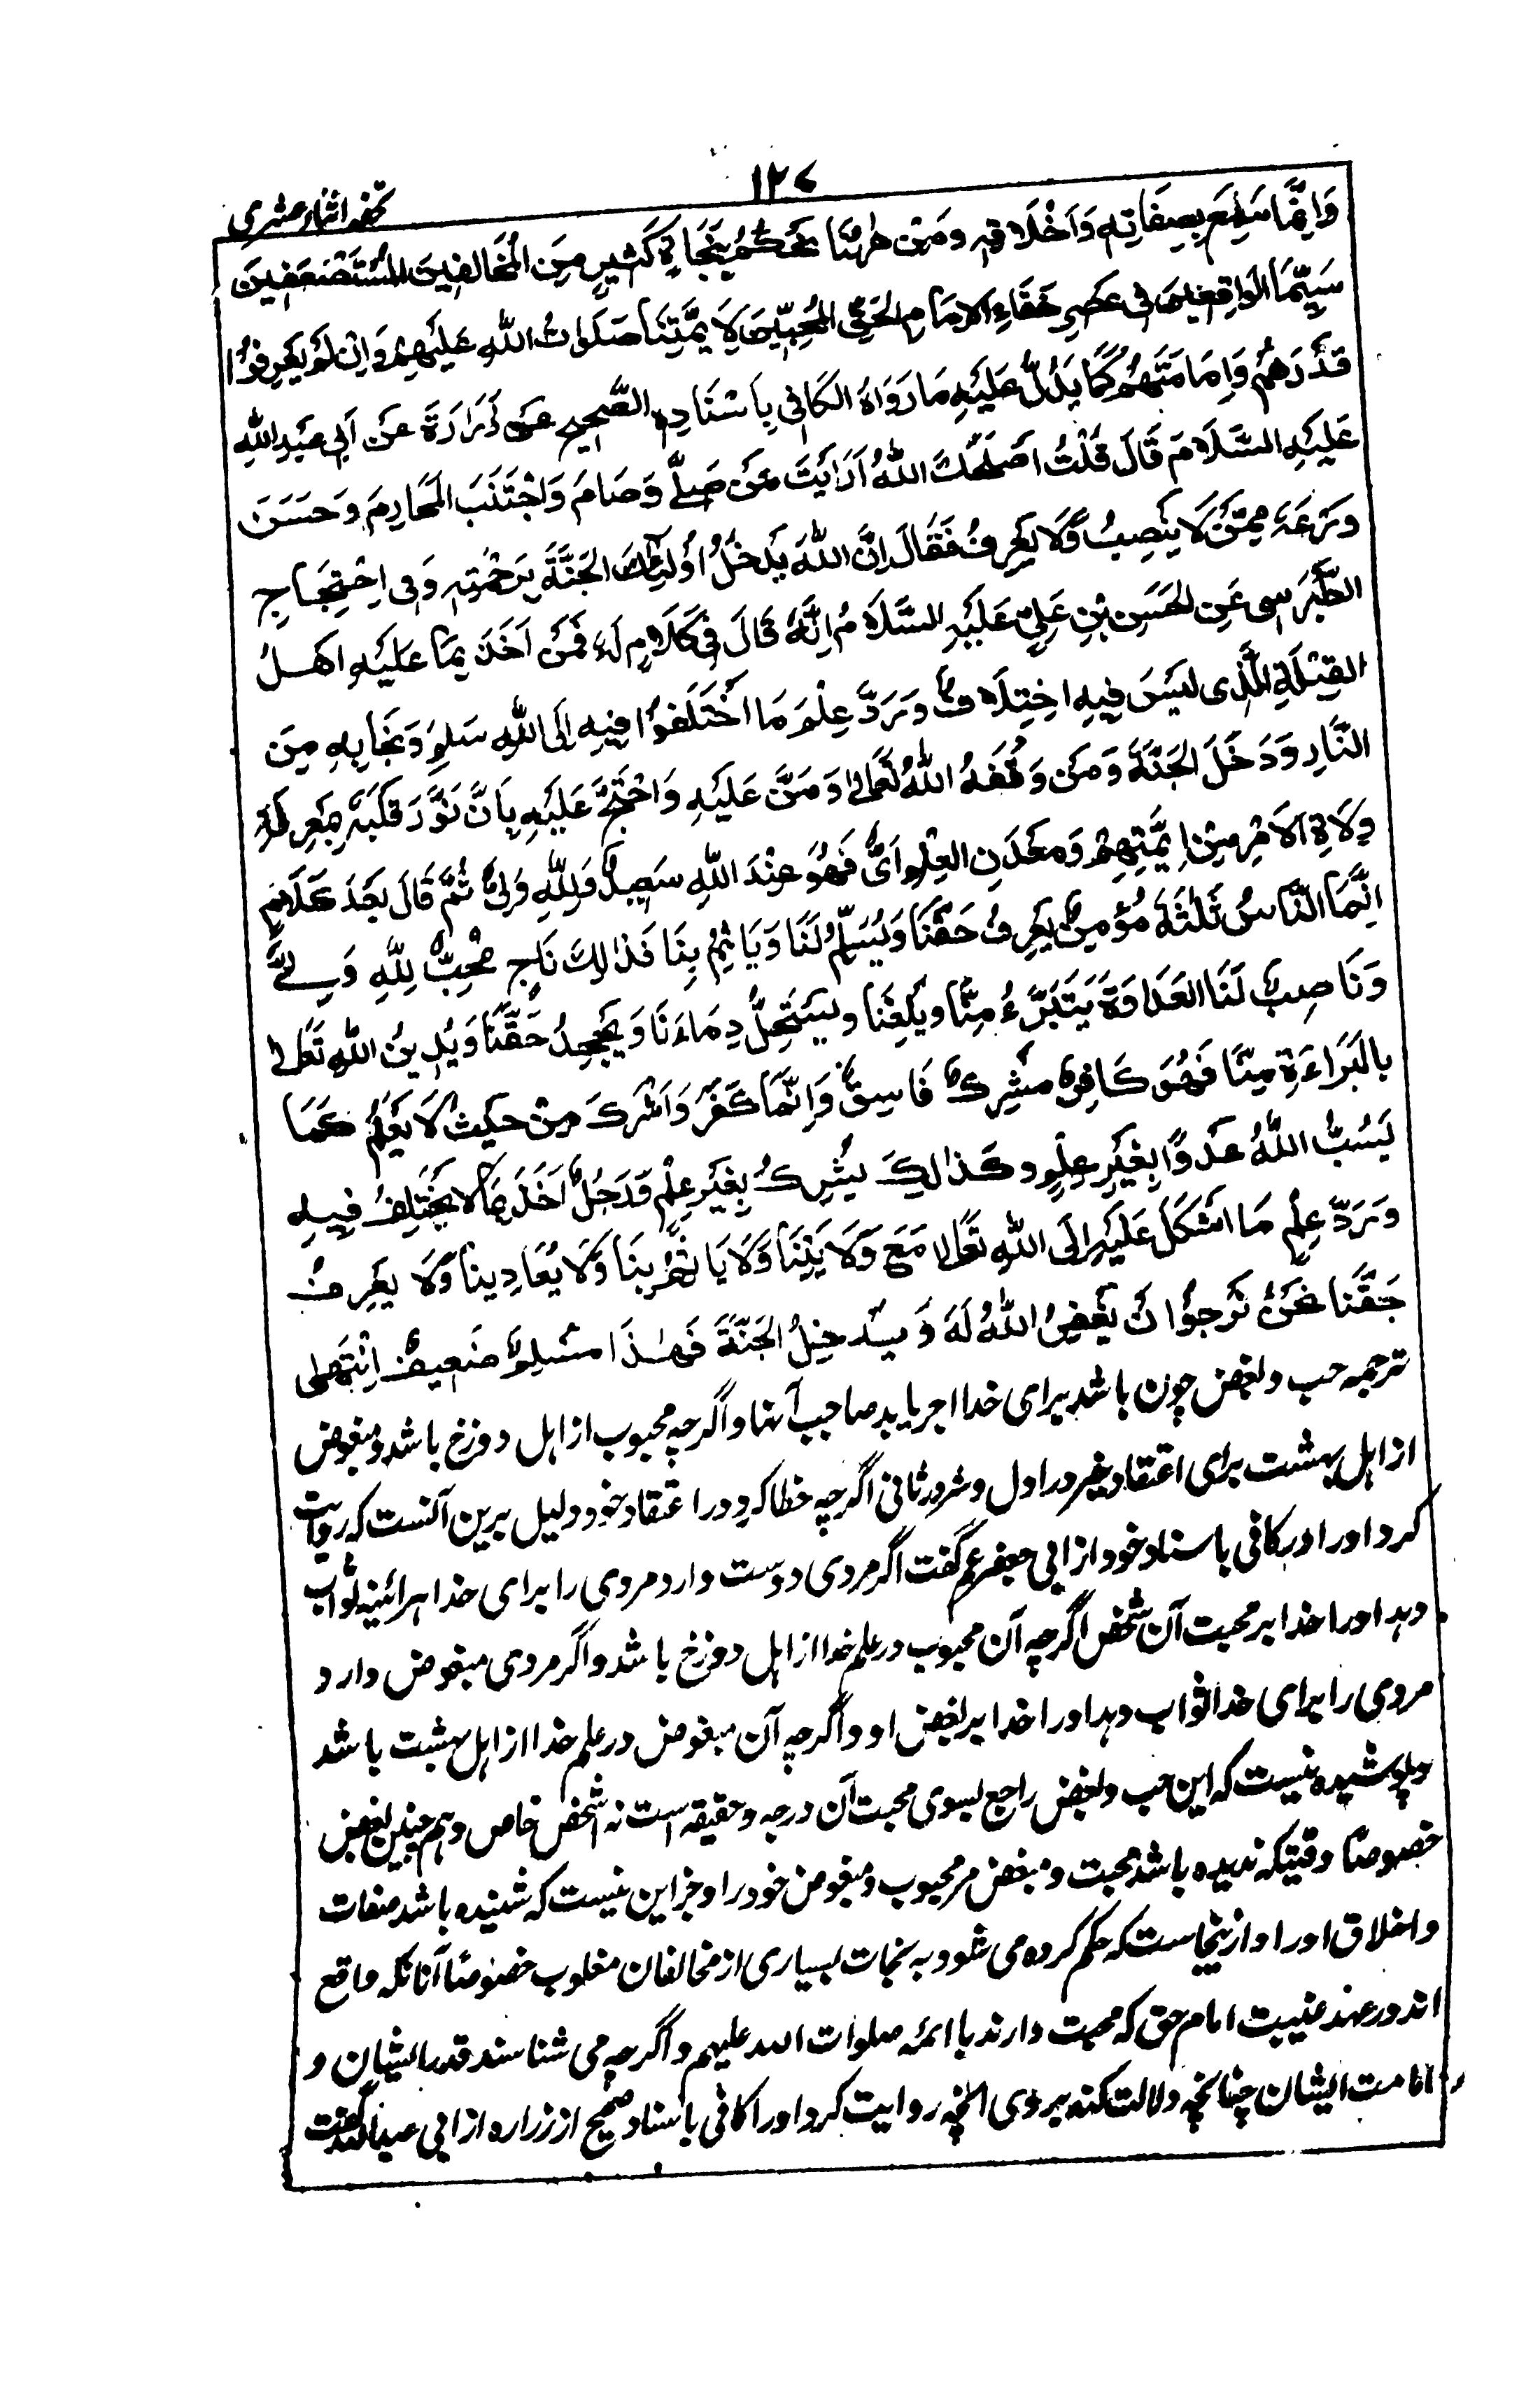 ۱۲۷
تحفه اثنا عشری
وَاِنَّمَا سَمِعَ بِصِفَاتِهٖ وَاَخْلَاقِهٖ وَمِنْ هٰهُنَا يُحْكَمُ بِنَجَاةِ كَثِيْرٍ مِنَ الْمُخَالِفِيْنَ الْمُسْتَضْعَفِيْنَ
سِيَّمَا الْوَاقِعِيْنَ فِى عَصْرِ خَفَاءِ الْاِمَامِ الْحَقِّ الْمُحِبِّيْنَ لِاَئِمَّتِنَا صَلَوَاتُ اللهِ عَلَيْهِمْ وَاِنْ لَمْ يَعْرِفُوْا
قَدْرَهُمْ وَاِمَامَتَهُمْ كَمَا يَدُلُّ عَلَيْهِ مَا رَوَاهُ الْكَافِى بِاَسْنَادِهِ الصَّحِيْحِ عَنْ زُرَارَةَ عَنْ اَبِى عَبْدِ اللهِ
عَلَيْهِ السَّلَامَ قَالَ قُلْتُ اَصْلَحَكَ اللهُ اَرَاَيْتَ مَنْ صَلّٰے وَصَامَ وَاجْتَنَبَ الْمَحَارِمَ وَحَسَنَ
وَرَعَهٗ مِمَّنْ لَا يَنْصِبُ وَلَا يَعْرِفُ فَقَالَ اِنَّ اللهَ يُدْخِلُ اُولٰئِكَ الْجَنَّةَ بِرَحْمَتِهٖ وَفِى اِحْتِجَاجِ
الطَّبْرَسِى عَنِ الْحَسَنِ بْنِ عَلِيٍّ عَلَيْهِ السَّلَامُ اِنَّهٗ قَالَ فِى كَلَامٍ لَهٗ فَمَنْ اَخَذَ بِمَا عَلَيْهِ اَهْلُ
الْقِبْلَةِ الَّذِى لَيْسَ فِيْهِ اخْتِلَافٌ وَرَدَّ عِلْمَ مَا اخْتَلَفُوْا فِيْهِ اِلَى اللهِ سَلِمَ وَنَجَا بِهٖ مِنَ
النَّارِ وَدَخَلَ الْجَنَّةَ وَمَنْ وَفَّقَهُ اللهُ تَعَالٰى وَمَنَّ عَلَيْهِ وَاحْتَجَّ عَلَيْهِ بِاَنْ نَوَّرَ قَلْبَهٗ بِمَعْرِفَةِ
وِلَاةِ الْاَمْرِ مِنْ اَئِمَّتِهِمْ وَمَعْدَنِ الْعِلْمِ اَىٌّ فَهُوَ عِنْدَ اللهِ سَعِيْدٌ وَلِلّٰهِ وَلِىٌّ ثُمَّ قَالَ بَعْدَ كَلَامٍ
اِنَّمَا النَّاسُ ثَلٰثَةٌ مُؤْمِنٌ يَعْرِفُ حَقَّنَا وَيُسَلِّمُ لَنَا وَيَاْتَمُّ بِنَا فَذٰلِكَ نَاجٍ مُحِبٌّ لِلّٰهِ وَلِىٌّ
وَنَاصِبٌ لَنَا الْعَدَاوَةَ يَتَبَرَّءُ مِنَّا وَيَلْعَنُنَا وَيَسْتَحِلُّ دِمَاءَنَا وَيَجْحَدُ حَقَّنَا وَيُدِيْنُ اللهَ تَعَالٰى
بِالْبَرَاءَةِ مِنَّا فَهُوَ كَافِرٌ مُشْرِكٌ فَاسِقٌ وَاِنَّمَا كَفَرَ وَاَشْرَكَ مِنْ حَيْثُ لَا يَعْلَمُ كَمَا
يَسُبُّ اللهَ عَدْوًا بِغَيْرِ عِلْمٍ وَكَذٰلِكَ يُشْرِكُ بِغَيْرِ عِلْمٍ وَرَجُلٌ اَخَذَ بِمَا لَا يُخْتَلِفُ فِيْهِ
وَرَدَّ عِلْمَ مَا اَشْكَلَ عَلَيْهِ اِلَى اللهِ تَعَالٰى مَعَ وَلَايَتِنَا وَلَا يَاْتَمُّ بِنَا وَلَا يُعَادِيْنَا وَلَا يَعْرِفُ
حَقَّنَا فَنَحْنُ نَرْجُوْا اَنْ يَغْفِرَ اللهُ لَهٗ وَيُدْخِلَ الْجَنَّةَ فَهٰذَا مُسْلِمٌ ضَعِيْفٌ اِنْتَهٰى
ترجمه حب وبغض چون باشد برای خدا اجر یابد صاحب آنها واگرچه محبوب از اهل دوزخ باشد ومبغوض
از اهل بهشت برای اعتقاد خیر در اول وشر در ثانی اگرچه خطا کرد در اعتقاد خود ودلیل برین آنست که روایت
کرد او را در کافی باسناد خود از ابی جعفر ع گفت اگر مردی دوست دارد مردی را برای خدا هرائینه ثواب
دهد او را خدا بر محبت آن شخص اگرچه آن محبوب در علم خدا از اهل دوزخ باشد واگر مردی مبغوض دارد
مردی را برای خدا ثواب دهد او را خدا بر بغض او واگرچه آن مبغوض در علم خدا از اهل بهشت باشد
وپوشیده نیست که این حب وبغض راجع بسوی محبت آن درجه وحقیقه است نه شخص خاص وهم چنین بغض
خصوصًا وقتیکه ندیده باشد محبت ومبغض مر محبوب ومبغوض خود را وجز این نیست که شنیده باشد صفات
واخلاق او را و از ینجاست که حکم کرده می شود به نجات بسیاری از مخالفان مغلوب خصوصًا آنانکه واقع
اند در عهد غیبت امام حق که محبت دارند با ائمه صلوات الله علیهم واگرچه می شناسند قدر ایشان و
امامت ایشان چنانچه دلالت کند بر وی آنچه روایت کرد او را کافی باسناد صحیح از زراره از ابی عبدالله گفت